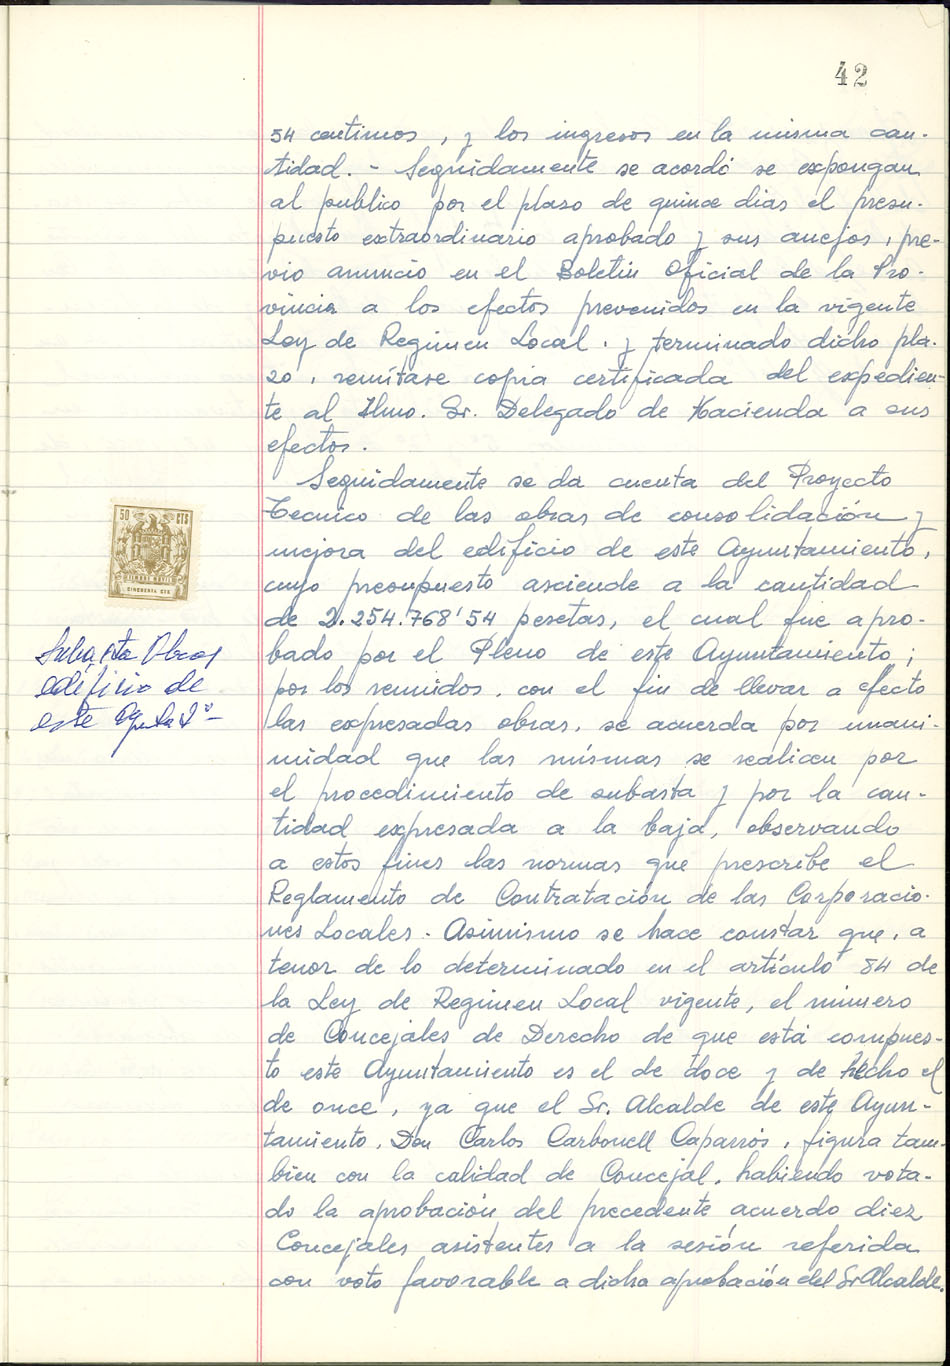 42
54 centimos, y los ingresos en la misma can-
tidad. - Seguidamente se acordó se expongan
al publico por el plazo de quince dias el presu-
puesto extraordinario aprobado y sus anejos, pre-
vio anuncio en el Boletin Oficial de la Pro-
vincia a los efectos prevenidos en la vigente
Ley de Regimen Local. y terminado dicho pla-
zo, remítase copia certificada del expedien-
te al Ilmo. Sr. Delegado de Hacienda a sus
efectos.
Seguidamente se da cuenta del Proyecto
Tecnico de las obras de consolidación y
mejora del edificio de este Ayuntamiento,
cuyo presupuesto asciende a la cantidad
de 2.254.768'54 pesetas, el cual fue apro-
bado por el Pleno de este Ayuntamiento;
por los reunidos, con el fin de llevar a efecto
las expresadas obras, se acuerda por unani-
midad que las mísmas se realicen por
el procedimiento de subasta y por la can-
tidad expresada a la baja, observando
a estos fines las normas que prescribe el
Reglamento de Contratación de las Corporacio-
nes Locales. Asimismo se hace constar que, a
tenor de lo determinado en el artículo 84 de
la Ley de Regimen Local vigente, el número
de Concejales de Derecho de que está compues-
to este Ayuntamiento es el de doce y de hecho el
de once, ya que el Sr. Alcalde de este Ayun-
tamiento, Don Carlos Carbonell Caparrós, figura tam-
bien con la calidad de Concejal, habiendo vota-
do la aprobación del precedente acuerdo diez
Concejales asistentes a la sesión referida
con voto favorable a dicha aprobación del Sr Alcalde.
50 CTS
TIMBRE MOVIL
CINCUENTA CTS
Subasta Obras
edificio de
este Ayuntatº-